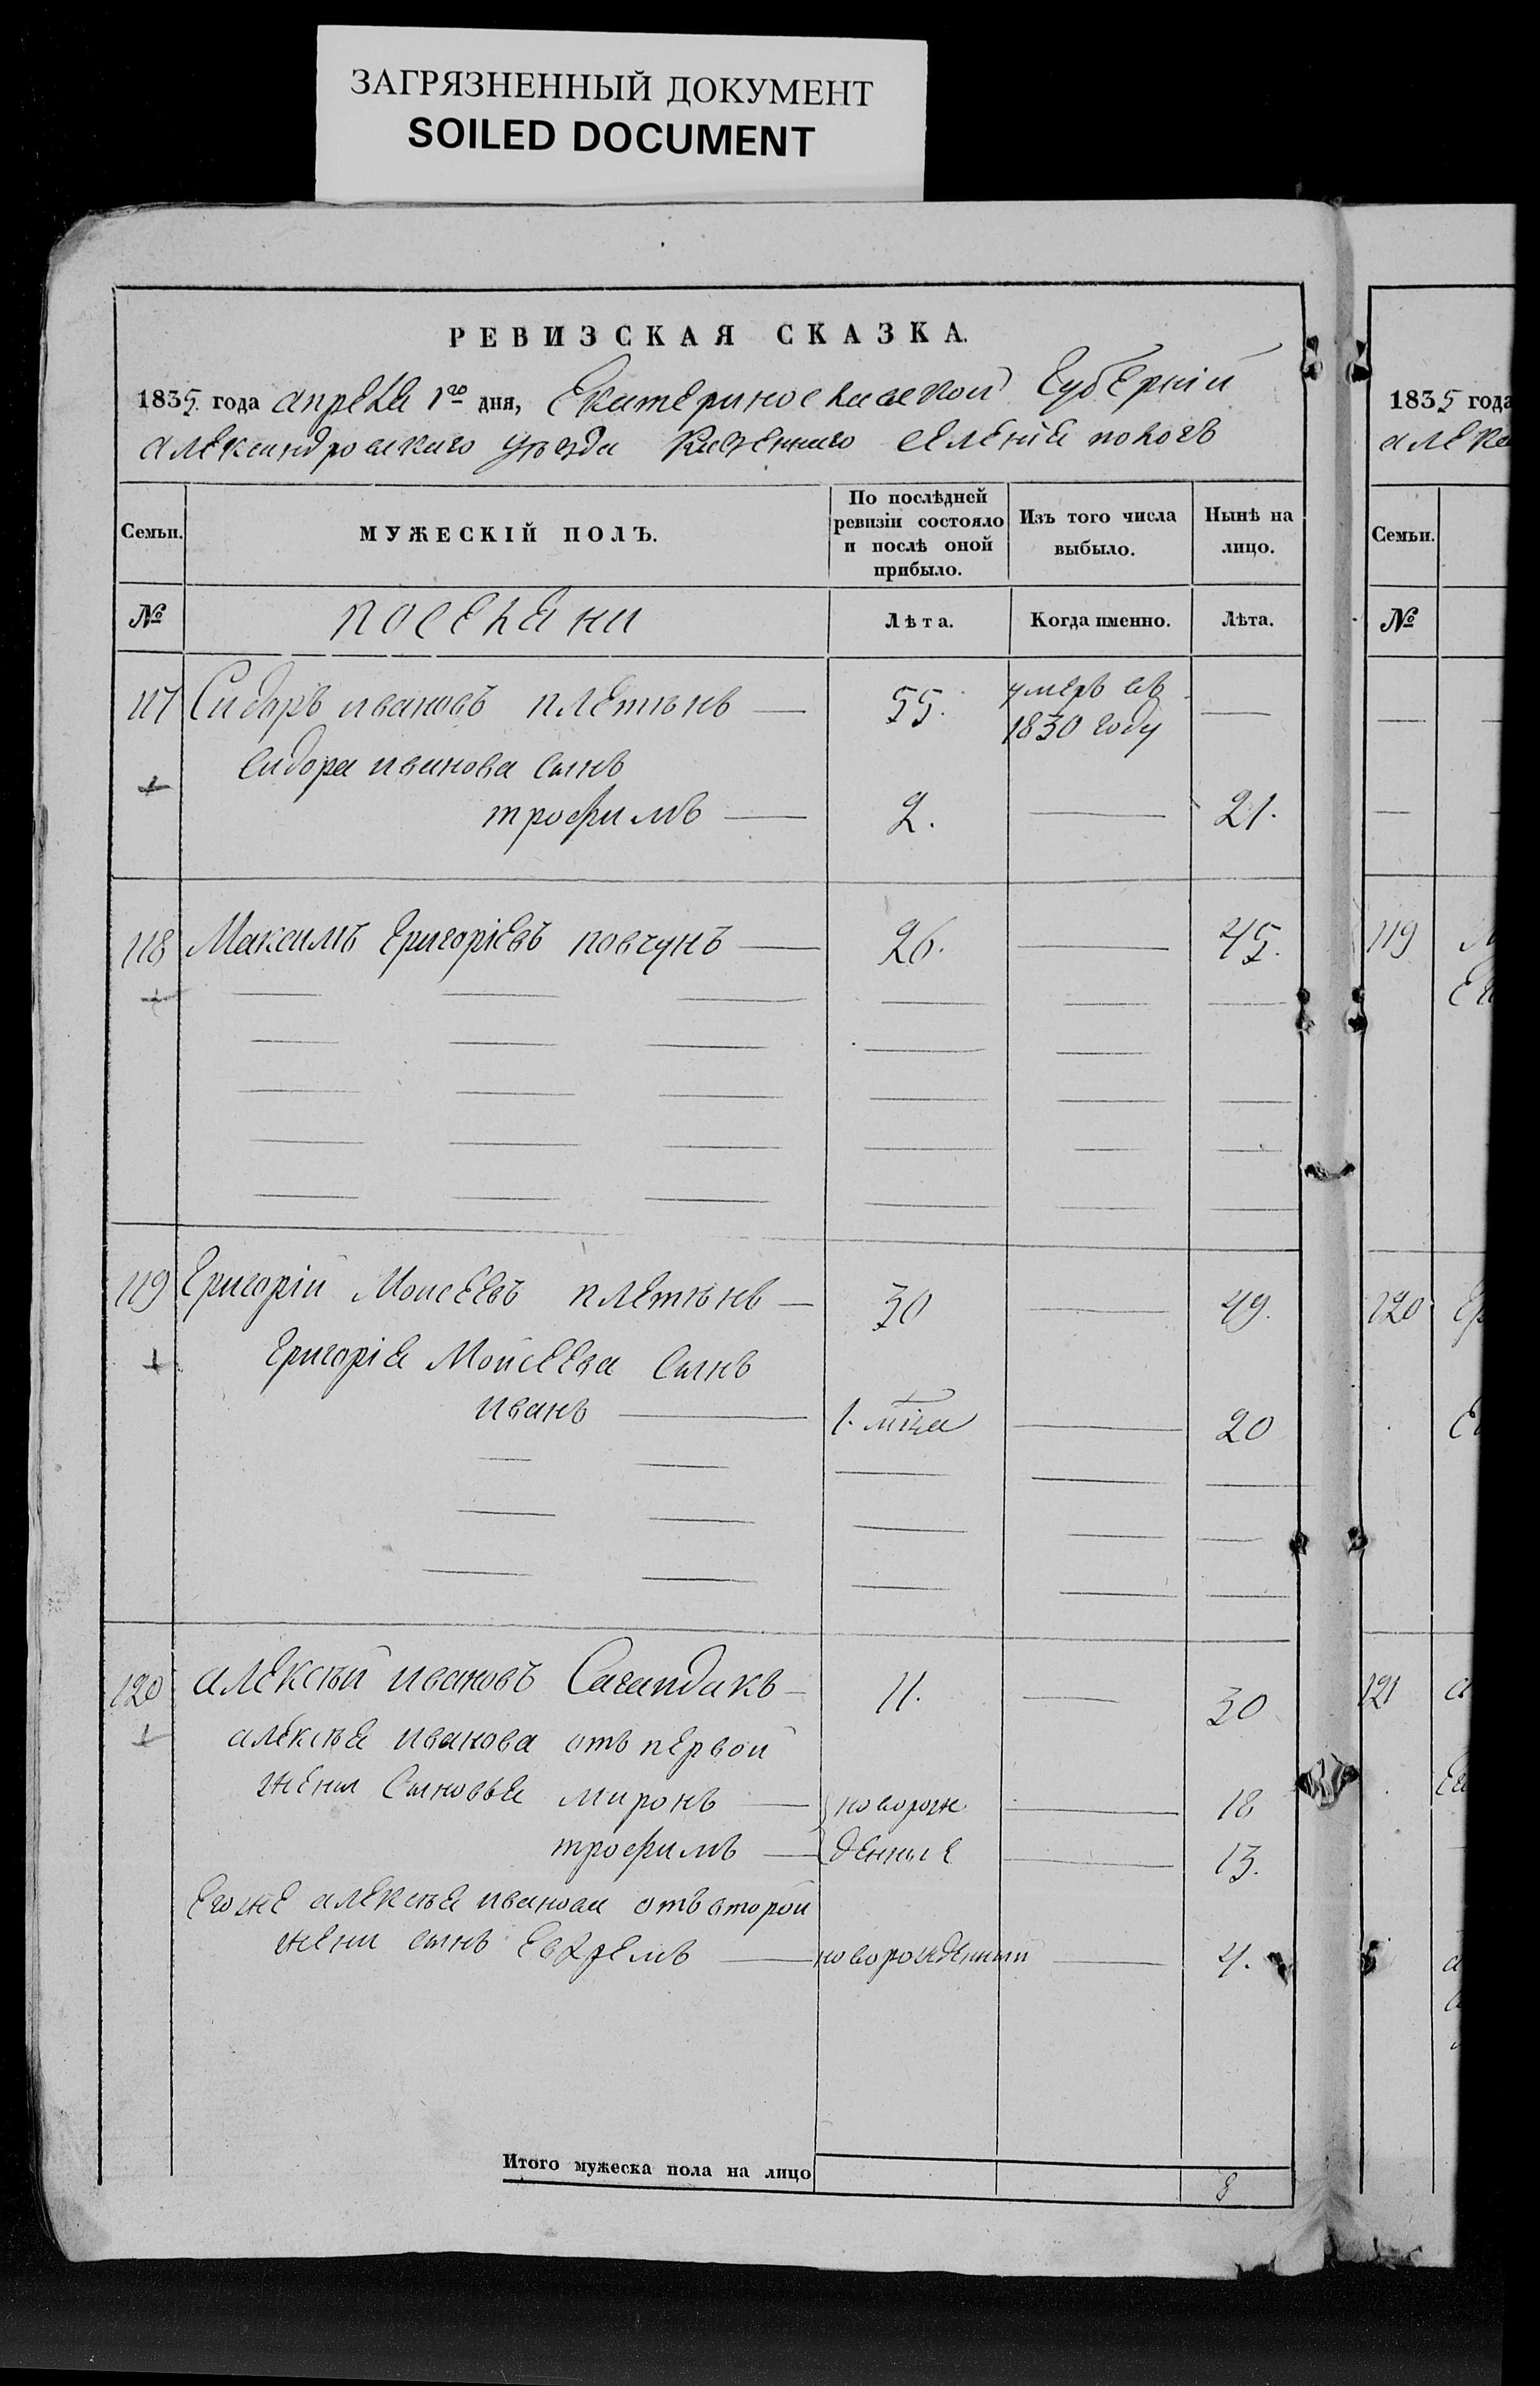 ЗАГРЯЗНЕННЫЙ ДОКУМЕНТ
SOILED DOCUMENT
РЕВИЗСКАЯ СКАЗКА.
1835 года апреля 1го дня, Екатеринославской Губерніи
александровскаго уѣзда Казеннаго селенія пологъ
Семьи.
МУЖЕСКІЙ ПОЛЪ.
По послѣдней ревизіи состояло и послѣ оной прибыло.
Изъ того числа выбыло.
Нынѣ на лицо.
№ поселяни Лѣта. Когда именно. Лѣта.
117 Сидоръ ивановъ плетѣнь — 55. умеръ въ 1830 году —
Сидора иванова сынъ
трофимъ — 2. — 21.
118 Максимъ Григоріевъ ковтунъ — 26. — 45.
119 Григорій Моисеевъ плетѣнь — 30 — 49.
Григорія Моисеева сынъ
иванъ — 1. мца — 20
120 алексѣй ивановъ Сагайдакъ — 11. — 30
алексѣя иванова отъ первой
жены Сыновья миронъ — новорож — 18
трофимъ — денные — 13.
Его же алексѣя иванова отъ второй
жены сынъ Ефремъ — новорожденный — 4.
Итого мужеска пола на лицо 8
1835 года
алек
Семьи.
№
119
120
121